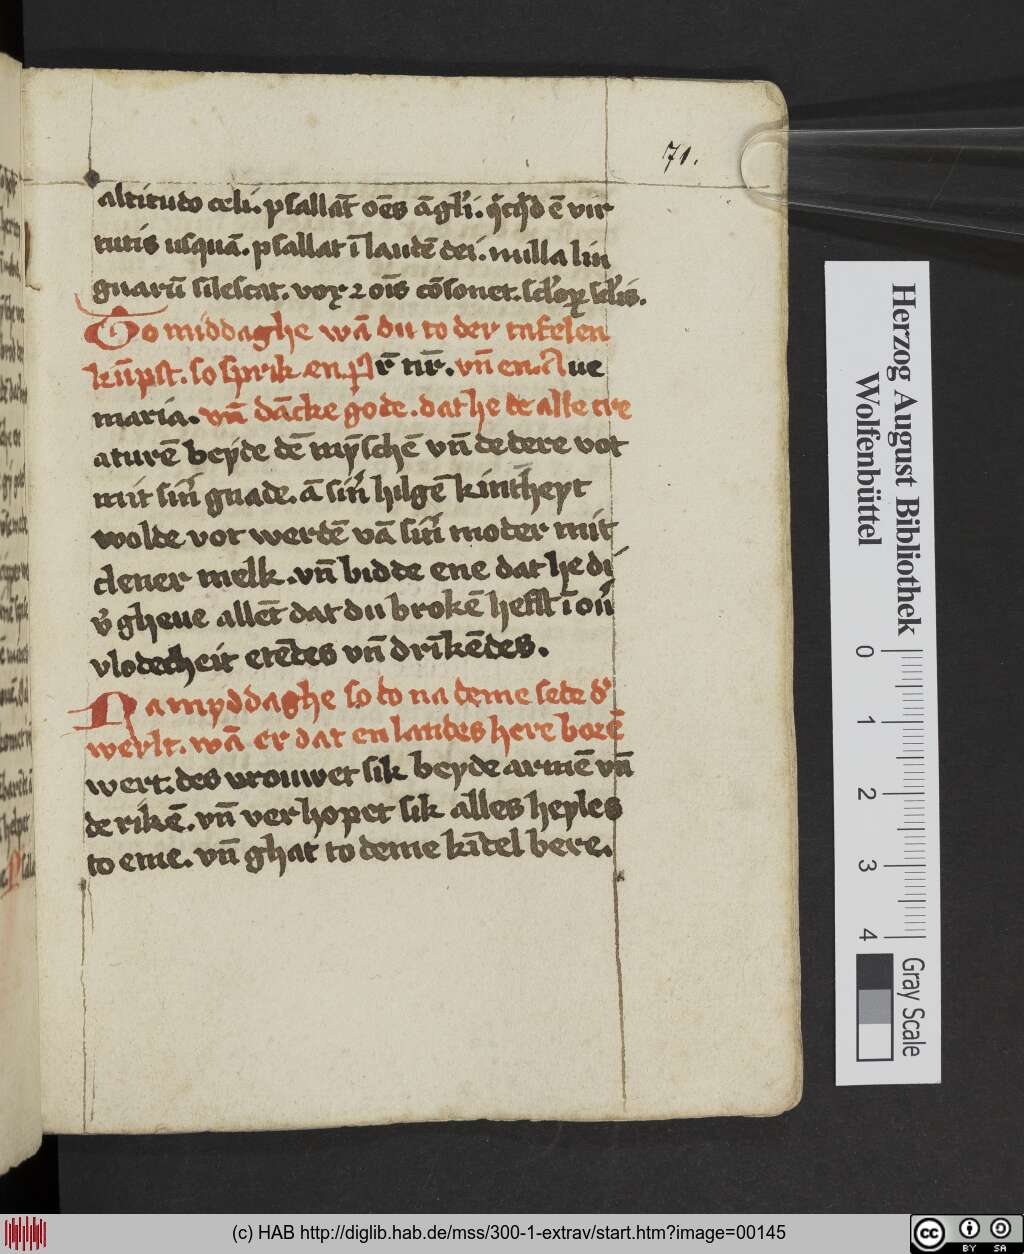 71.
altitudo celi. psallāt oēs āgl'i. qͥcqͥd ē vir
tutis usquā. psallat ī laudē dei. nulla lin
guarū silescat. vox ⁊ oīs cōsonet. scl'oꝝ scl'is.
To middaghe wā du to der tafelen
kūpst. so sprik en pr̄ nr̄. vn̄ en Aue
maria. vn̄ dācke gode. dat he de alle cre
aturē beyde dē mȳschē vn̄ de dere vot
mit sin̄ gnade. ā sin̄ hilgē kintheyt
wolde vot werdē vā sin̄ moder mit
clener melk. vn̄ bidde ene dat he di
v'gheue allēt dat du brokē hefst ī ou'
vlodecheit etēdes vn̄ drīkēdes.
Na myddaghe so do na deme sede d'
werlt. wā er dat en landes here borē
wert. des vrouwet sik beyde armē vn̄
de rikē. vn̄ verhopet sik alles heyles
to eme. vn̄ ghat to deme kīdel bere.
Herzog August Bibliothek
Wolfenbüttel
0 1 2 3 4
Gray Scale
(c) HAB http://diglib.hab.de/mss/300-1-extrav/start.htm?image=00145
cc BY SA